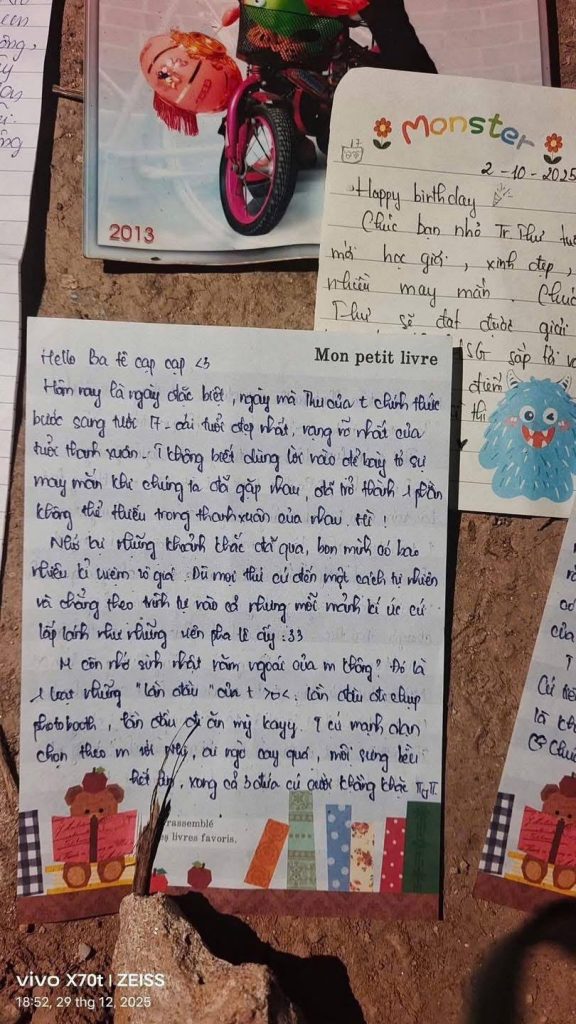 2013
Monster
2-10-2025
Happy birthday
Chúc bạn nhỏ Tr.Thư tuổ
mới học giỏi, xinh đẹp,
nhiều may mắn. Chúc
Thư sẽ đạt được giải
HSG sắp tới và
điểm
thi
Mon petit livre
Hello Ba tê cạp cạp <3
Hôm nay là ngày đặc biệt, ngày mà Thư của t chính thức
bước sang tuổi 17 - cái tuổi đẹp nhất, rạng rỡ nhất của
tuổi thanh xuân. T không biết dùng lời nào để bày tỏ sự
may mắn khi chúng ta đã gặp nhau, đã trở thành 1 phần
không thể thiếu trong thanh xuân của nhau. Hì!
Nhớ lại những khoảnh khắc đã qua, bọn mình có bao
nhiêu kỉ niệm vô giá. Dù mọi thứ cứ đến một cách tự nhiên
và chẳng theo trình tự nào cả nhưng mỗi mảnh kí ức cứ
lấp lánh như những viên pha lê ấy :33
M còn nhớ sinh nhật năm ngoái của m không? Đó là
1 loạt những "lần đầu" của t >v<: lần đầu đi chụp
photobooth, lần đầu đi ăn mỳ kayy. T cứ mạnh dạn
chọn theo m rồi ai ngờ cay quá, môi sưng
hết, xong cả 3 đứa cứ cười khằng khặc
rassemblé
es livres favoris.
vivo X70t | ZEISS
18:52, 29 thg 12, 2025